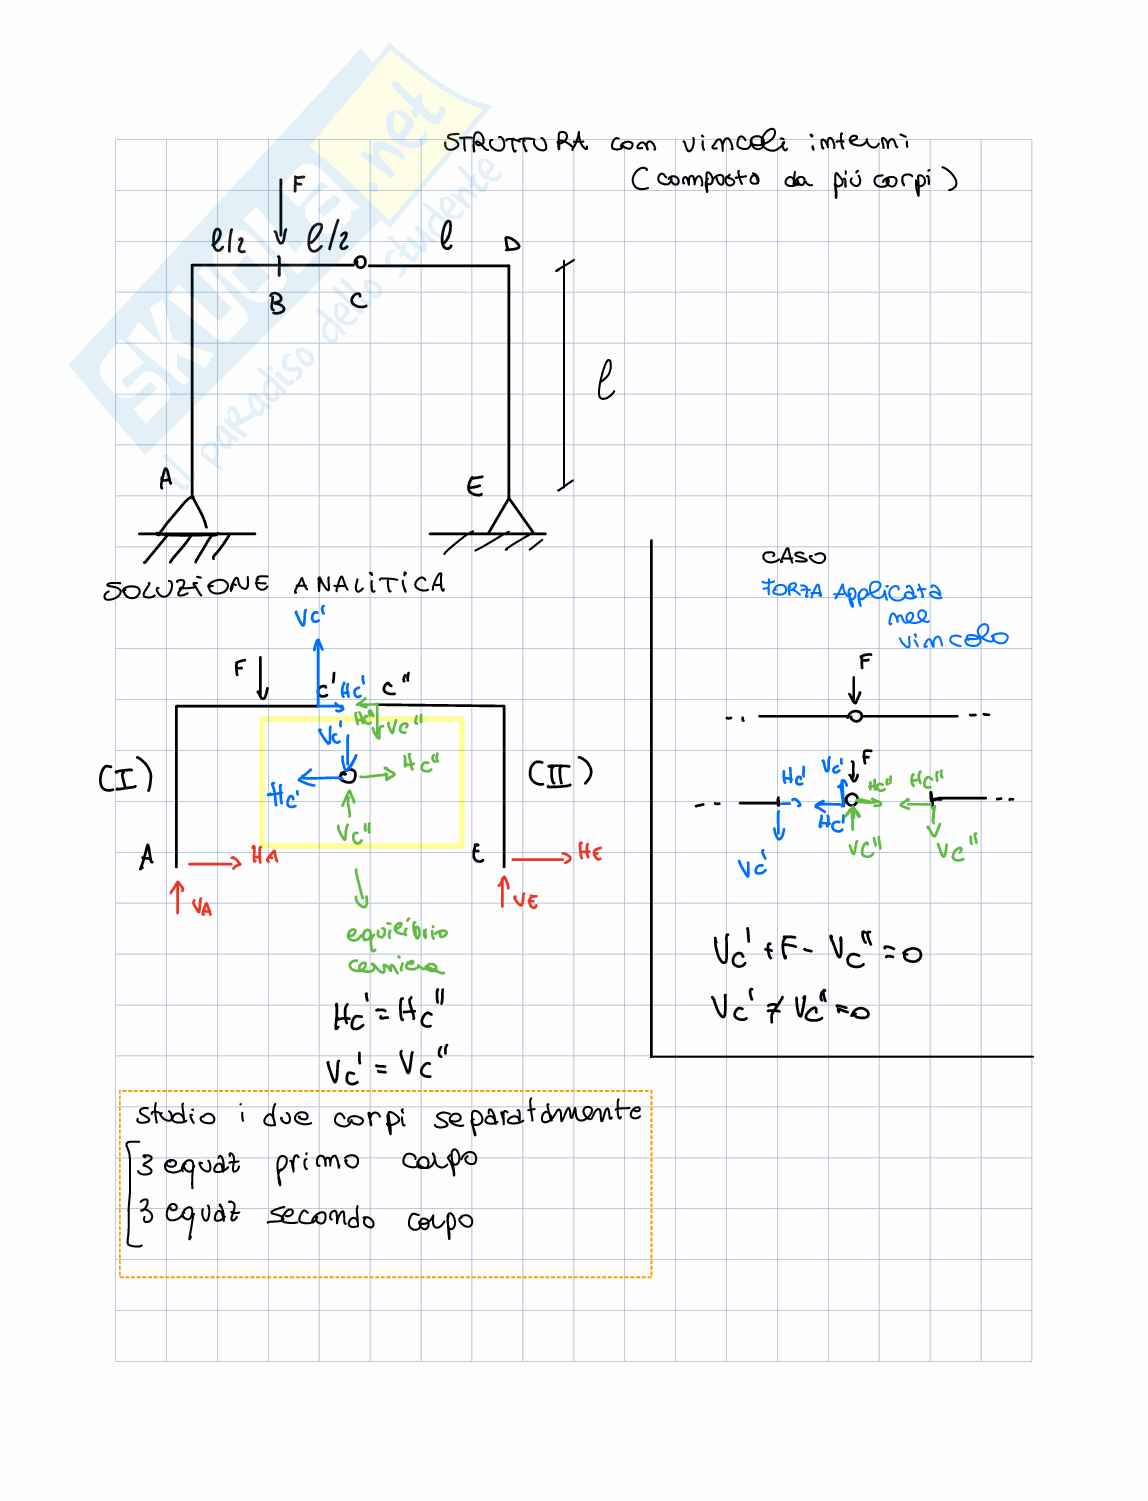 STRUTTURA con vincoli interni
(composto da più corpi)
F
l/2 l/2 l D
B C
l
A E
SOLUZIONE ANALITICA
Vc'
F C' Hc' C"
Hc" Vc"
Vc'
(I) Hc" (II)
Hc'
Vc"
A HA E HE
VA VE
equilibrio
cerniera
Hc' = Hc"
Vc' = Vc"
studio i due corpi separatamente
3 equaz primo corpo
3 equaz secondo corpo
CASO
FORZA Applicata
nel
vincolo
F
Hc' Vc' F Hc" Hc"
Hc'
Vc' Vc" Vc"
Vc' + F - Vc" = 0
Vc' ≠ Vc" = 0
SKUOLA.net
il paradiso dello studente